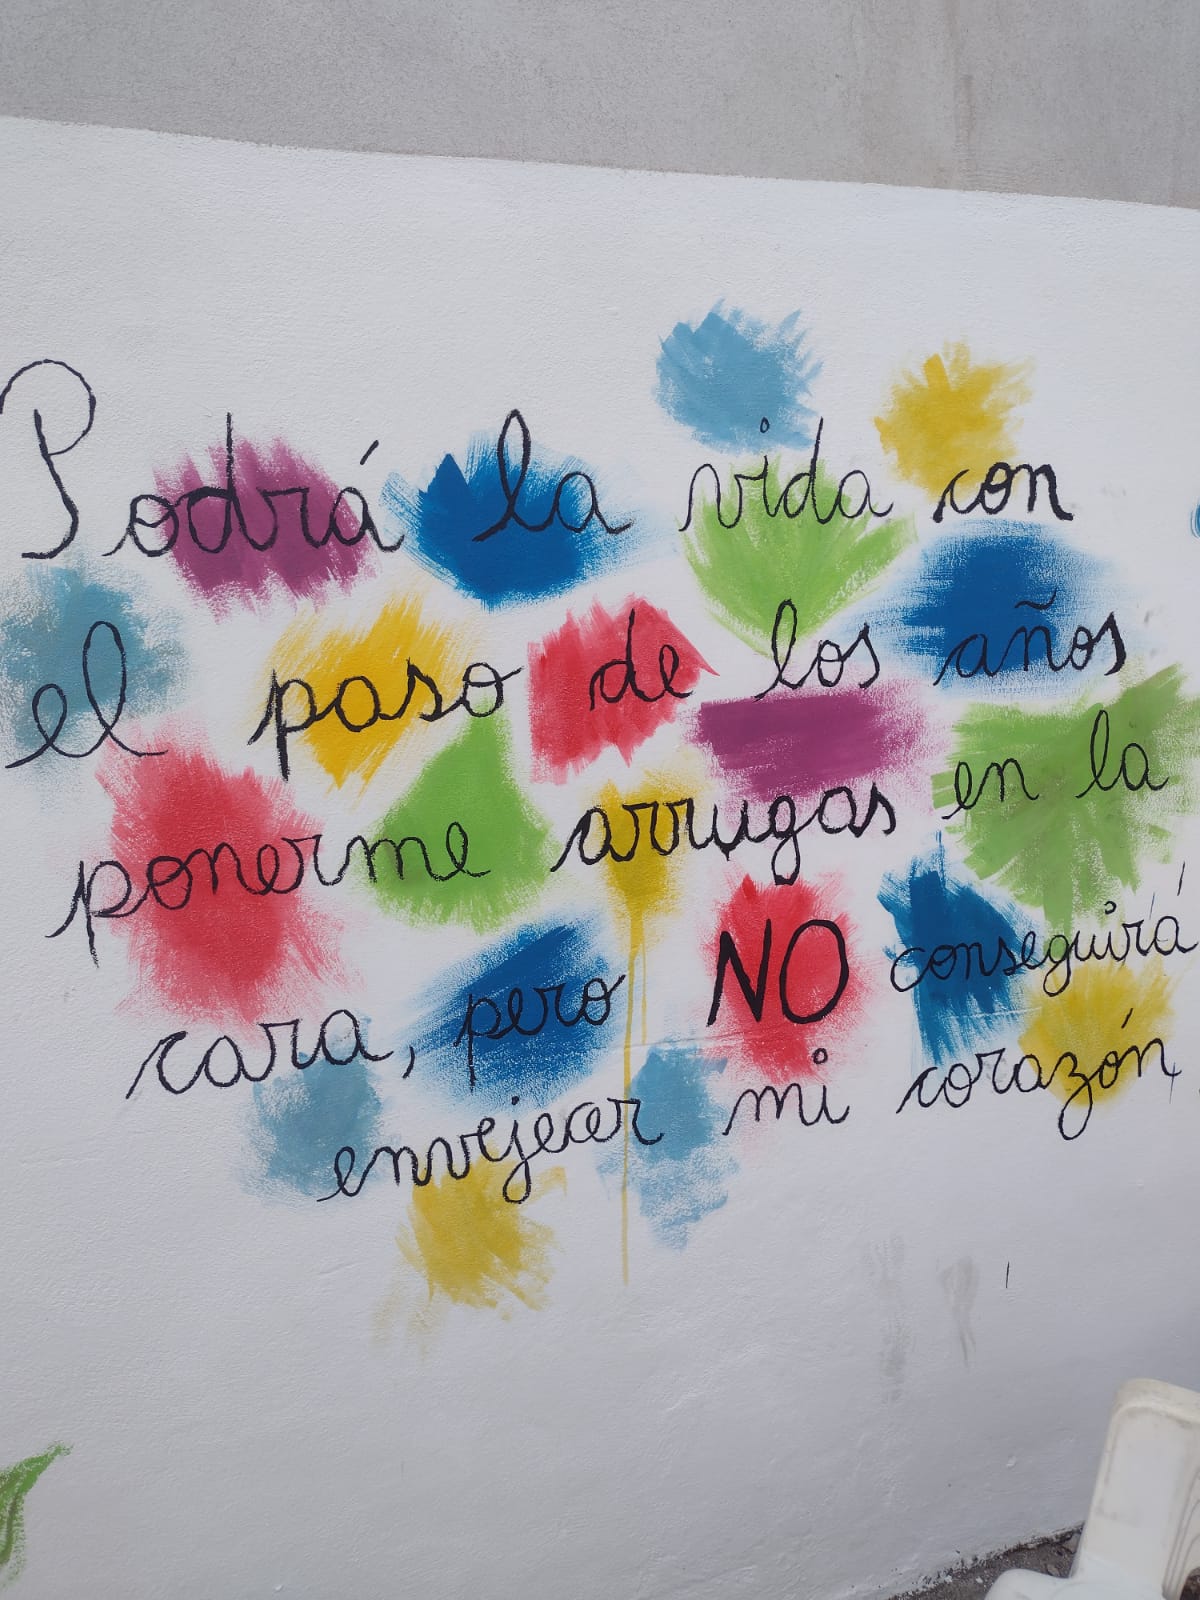 Podrá la vida con
el paso de los años
ponerme arrugas en la
cara, pero NO conseguirá
envejecer mi corazón